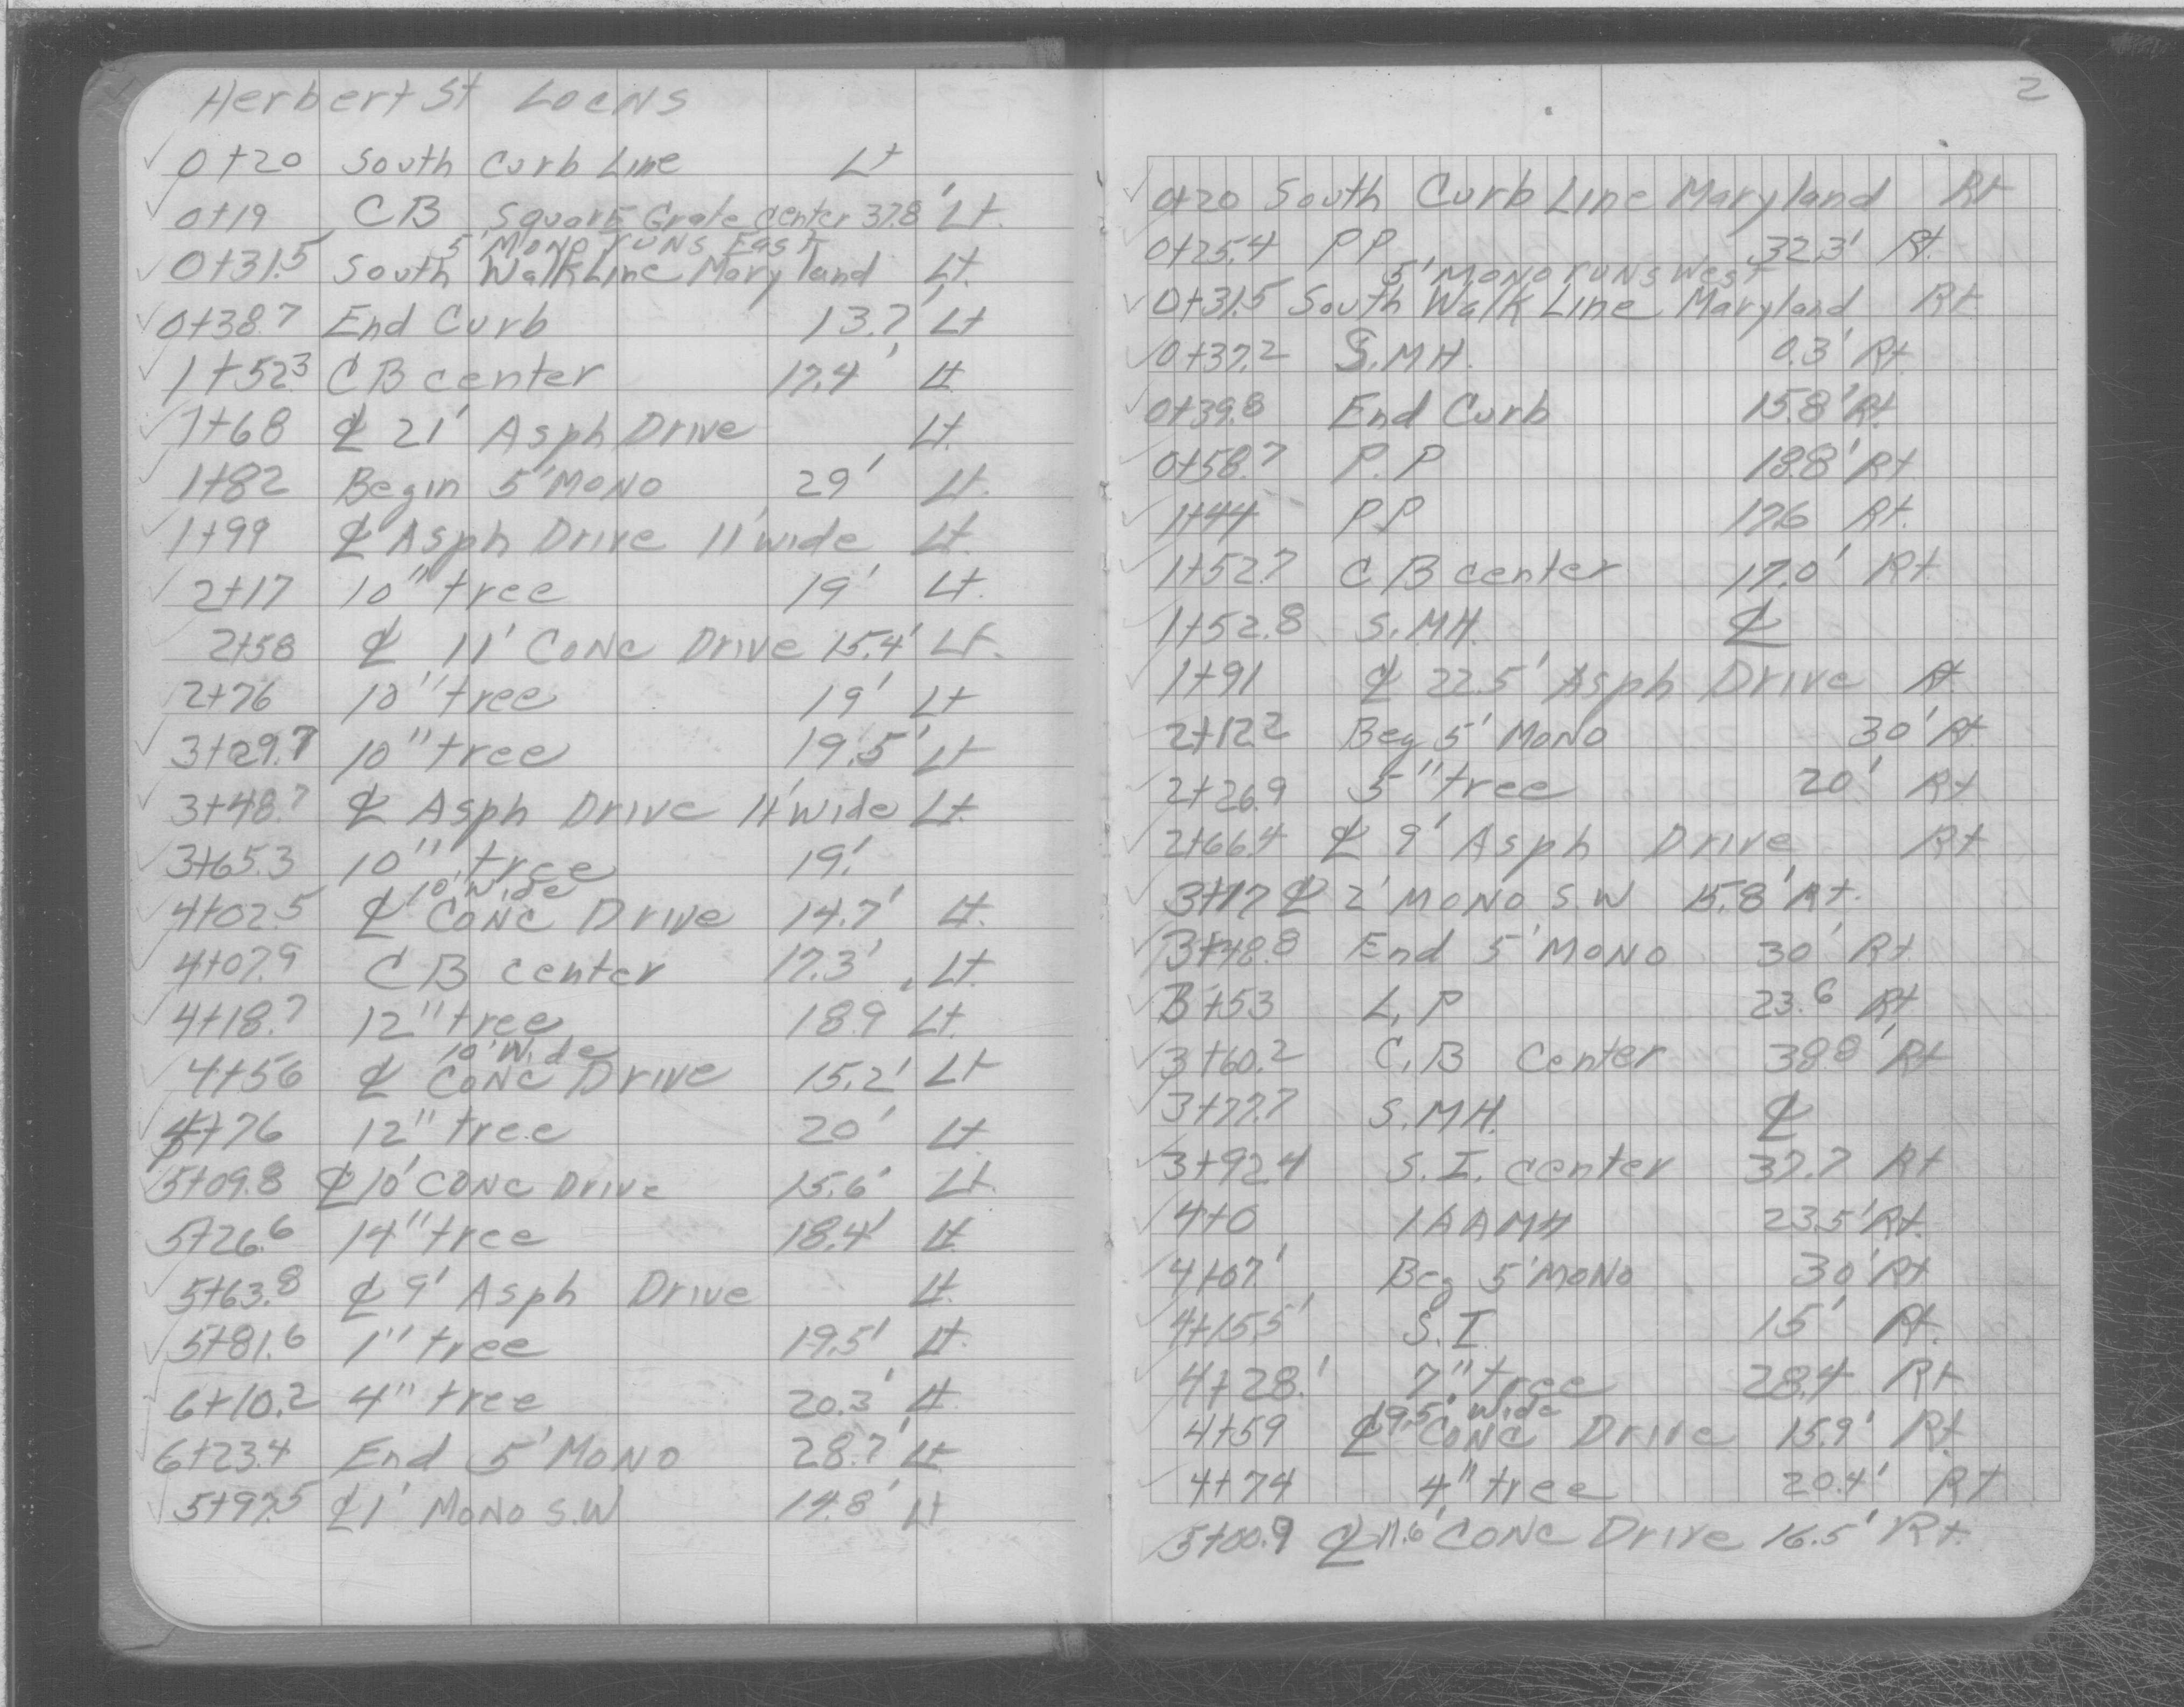 Herbert St Locns
0+20 South Curb Line Lt
0+19 CB Square Grate center 37.8' Lt.
5' Mono runs East
0+31.5 South Walk Line Maryland Lt.
0+38.7 End Curb 13.7' Lt
1+52.3 CB center 17.4' Lt.
1+68 ℄ 21' Asph Drive Lt.
1+82 Begin 5' Mono 29' Lt.
1+99 ℄ Asph Drive 11' wide Lt.
2+17 10" tree 19' Lt.
2+58 ℄ 11' Conc Drive 15.4' Lt.
2+76 10" tree 19' Lt
3+29.7 10" tree 19.5' Lt
3+48.7 ℄ Asph Drive 11' wide Lt.
3+65.3 10" tree 19'
10' Wide
4+02.5 ℄ Conc Drive 14.7' Lt.
4+07.9 CB center 17.3' Lt.
4+18.7 12" tree 18.9 Lt.
10' Wide
4+56 ℄ Conc Drive 15.2' Lt
4+76 12" tree 20' Lt
5+09.8 ℄ 10' Conc Drive 15.6' Lt.
5+26.6 14" tree 18.4' Lt
5+63.8 ℄ 9' Asph Drive Lt.
5+81.6 1" tree 19.5' Lt.
6+10.2 4" tree 20.3' Lt.
6+23.4 End 5' Mono 28.7' Lt
5+97.5 ℄ 1' Mono S.W 14.8' Lt
2
0+20 South Curb Line Maryland Rt
0+25.4 PP 32.3' Rt.
5' Mono runs West
0+31.5 South Walk Line Maryland Rt
0+37.2 S.MH. 0.3' Rt.
0+39.8 End Curb 15.8' Rt.
0+58.7 P.P 18.8' Rt
1+44 PP 17.6 Rt.
1+52.7 CB center 17.0' Rt
1+52.8 S.MH. ℄
1+91 ℄ 22.5' Asph Drive Rt.
2+12.2 Beg 5' Mono 30' Rt
2+26.9 5" tree 20' Rt
2+66.4 ℄ 9' Asph Drive Rt
3+17 ℄ 2' Mono S.W 15.8' Rt.
3+48.8 End 5' Mono 30' Rt
3+53 L.P 23.6 Rt
3+60.2 C.B Center 38.8' Rt
3+77.7 S.MH. ℄
3+92.4 S.I. center 37.7 Rt
4+0 23.5' Rt.
4+07' Beg 5' Mono 30' Rt
4+15.5' S.I. 15' Rt.
4+28.' 7" tree 28.4 Rt
19.5' Wide
4+59 ℄ Conc Drive 15.9' Rt
4+74 4" tree 20.4' Rt
5+00.9 ℄ 11.6' Conc Drive 16.5' Rt.